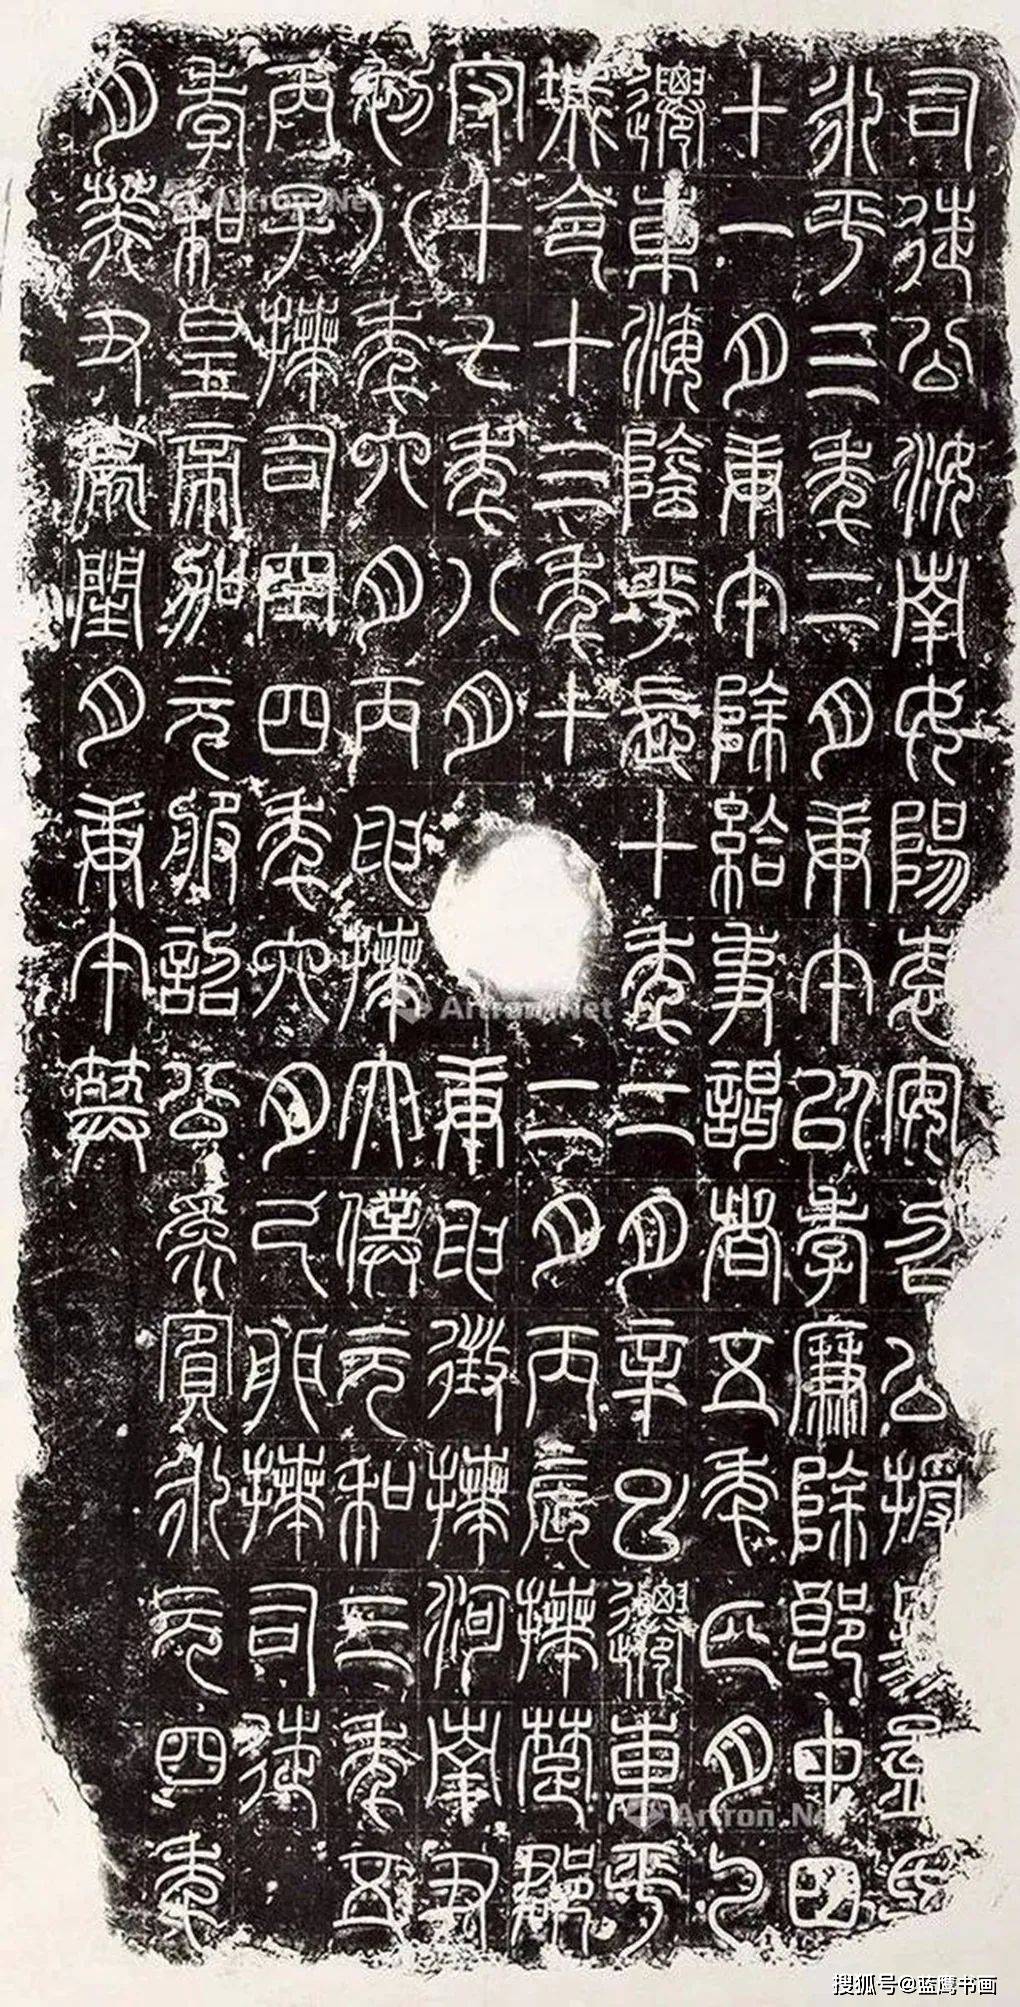 司徒公汝南女陽袁安召公授易孟氏
永平三年二月庚午以孝廉除郎中四
十一月庚午除給事謁者五年正月乙
遷東海陰平長十年二月辛巳遷東平
城令十三年十二月丙辰拜楚郡
守十七年八月庚申徵拜河南尹
初八年六月丙申拜太僕元和三年五
丙子拜司空四年六月己卯拜司徒
孝和皇帝加元服詔公為賓永元四年
月癸丑薨閏月庚午葬
Artron.Net
Artron.Net
Artron.Net
搜狐号@蓝鹰书画